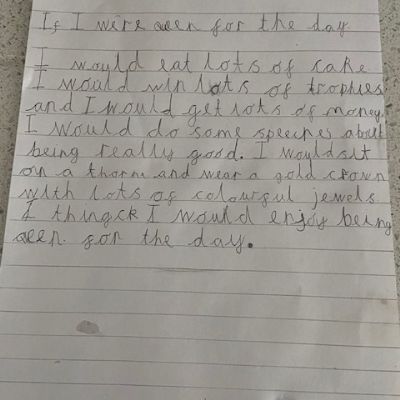 If I were qeen for the day
I would eat lots of cake
I would win lots of trophies
and I would get lots of money.
I would do some speeches about
being really good. I would sit
on a thorn and wear a gold crown
with lots of colourful jewels
I thingck I would enjoy being
qeen for the day.